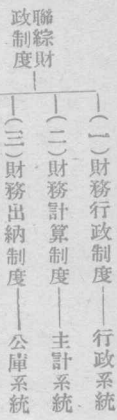 聯綜財政制度
(一)財務行政制度——行政系統
(二)財務計算制度——主計系統
(三)財務出納制度——公庫系統